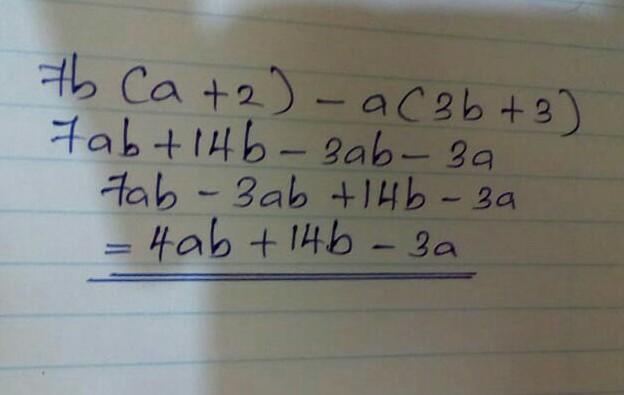 7b (a + 2) - a(3b + 3)
7ab + 14b - 3ab - 3a
7ab - 3ab + 14b - 3a
= 4ab + 14b - 3a